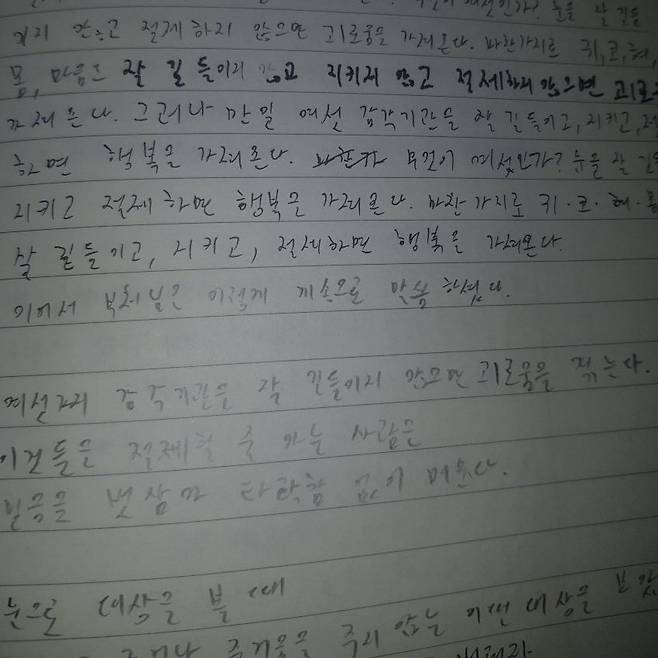 눈을 잘 길들
키지 않고 절제하지 않으면 괴로움을 가져온다. 마찬가지로 귀,코,혀,
몸, 마음도 잘 길들이지 않고 지키지 않고 절제하지 않으면 괴로
가져온다. 그러나 만일 여섯 감각기관을 잘 길들이고, 지키고, 절
하면 행복을 가져온다. 무엇이 여섯인가? 눈을 잘 길들
지키고 절제하면 행복을 가져온다. 마찬가지로 귀·코·혀·몸
잘 길들이고, 지키고, 절제하면 행복을 가져온다.
이어서 부처님은 이렇게 게송으로 말씀하셨다.
여섯가지 감각기관을 잘 길들이지 않으면 괴로움을 겪는다.
이것들을 절제할 줄 아는 사람은
믿음을 벗삼아 타락함 없이 머문다.
눈으로 대상을 볼 때
즐거움을 주지 않는 어떤 대상을 보았